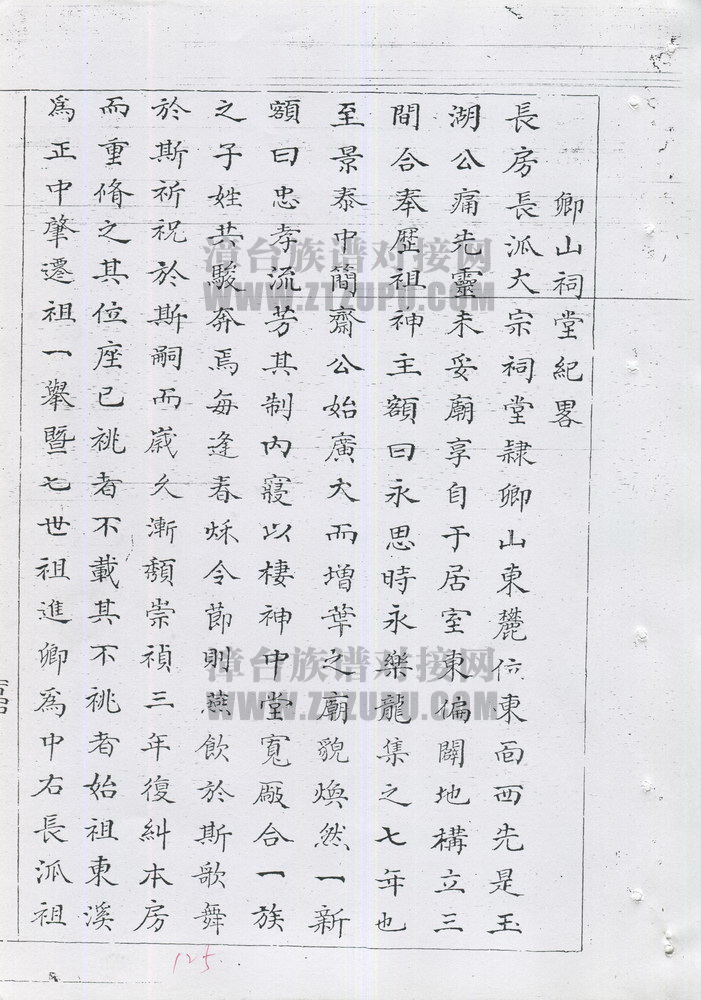 卿山祠堂紀畧
長房長派大宗祠堂隸卿山東麓位東面西先是玉
湖公痛先靈未妥廟享自于居室東偏闢地構立三
間合奉歷祖神主額曰永思時永樂龍集之七年也
至景泰中簡齋公始廣大而增葺之廟貌煥然一新
額曰忠孝流芳其制內寢以棲神中堂寬厰合一族
之子姓共駿奔焉每逢春秌令節則燕飲於斯歌舞
於斯祈祝於斯嗣而歲久漸頽崇禎三年復糾本房
而重脩之其位座已祧者不載其不祧者始祖東溪
為正中肇遷祖一舉暨七世祖進卿為中右長派祖
125.
漳台族谱对接网
WWW.ZTZUPU.COM
漳台族谱对接网
WWW.ZTZUPU.COM